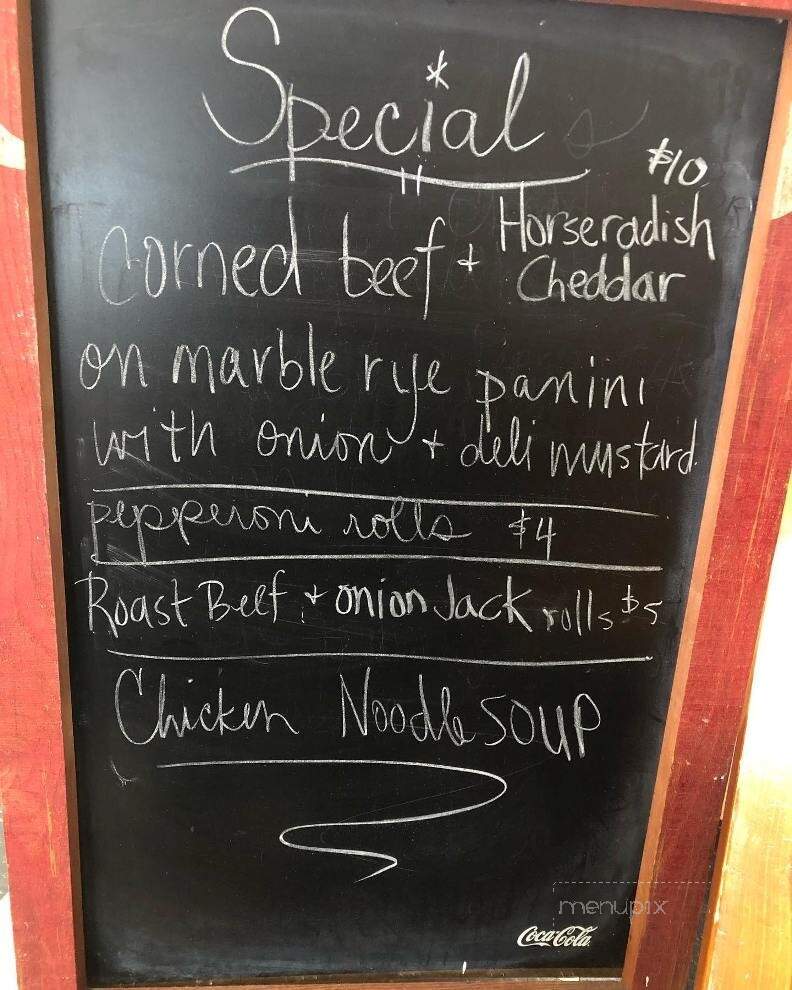 Special
$10
Corned beef + Horseradish
Cheddar
on marble rye panini
with onion + deli mustard
pepperoni rolls $4
Roast Beef + onion Jack rolls $5
Chicken Noodle SOUP
menupix
Coca-Cola